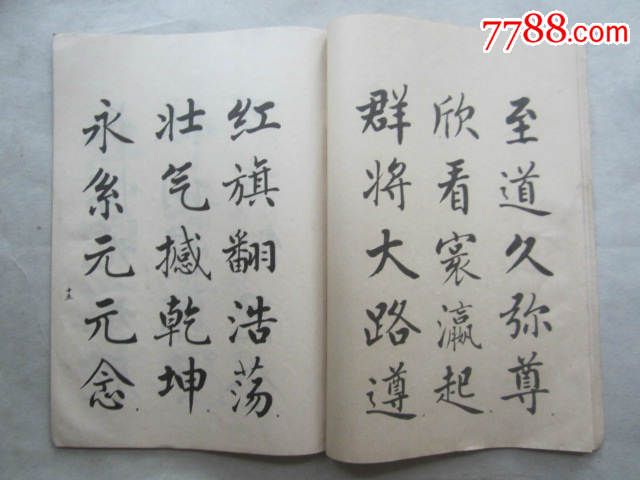 7788.com
至道久弥尊
欣看寰瀛起
群将大路遵
红旗翻浩荡
壮气撼乾坤
永系元元念
十五